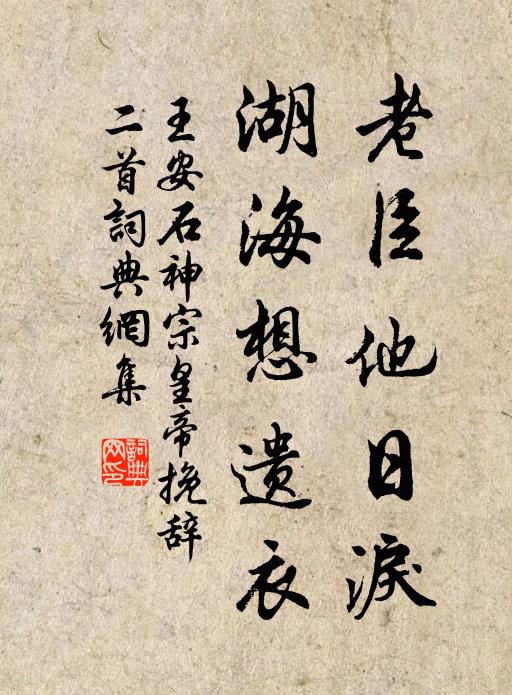 老臣他日淚
湖海想遺衣
王安石神宗皇帝挽辞
二首詞典網集
詞典网印